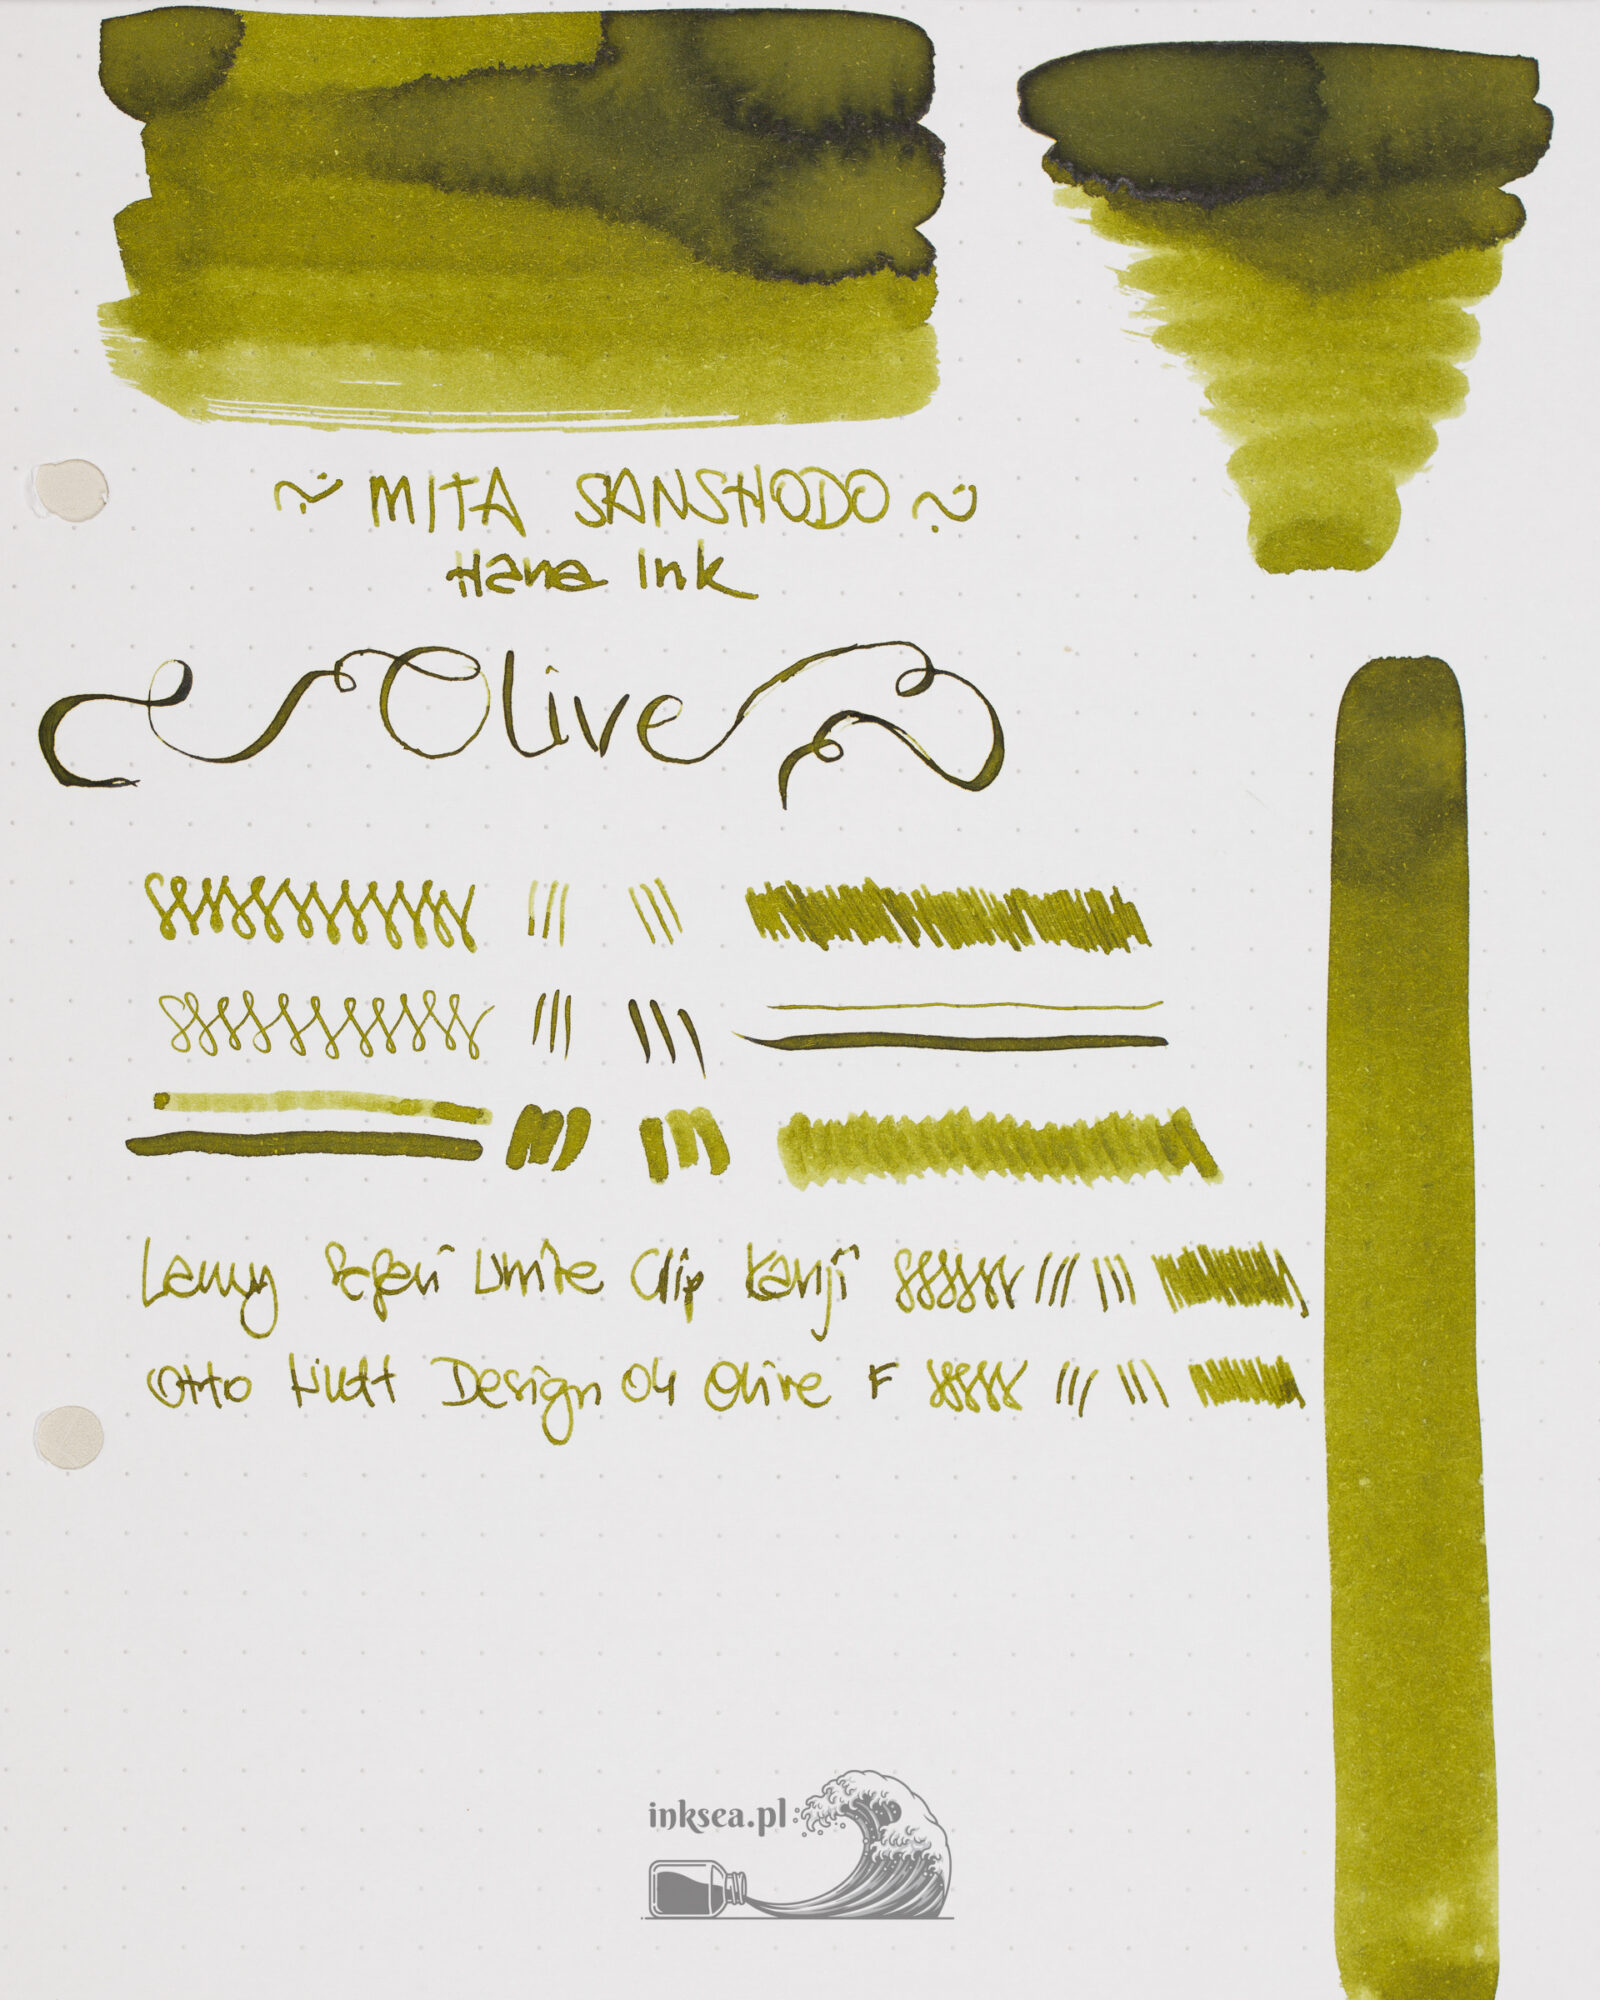 ~ MITA SANSHODO ~
Hana Ink
Olive
Lamy Safari White Clip Kanji
Otto Hutt Design 04 Olive F
inksea.pl